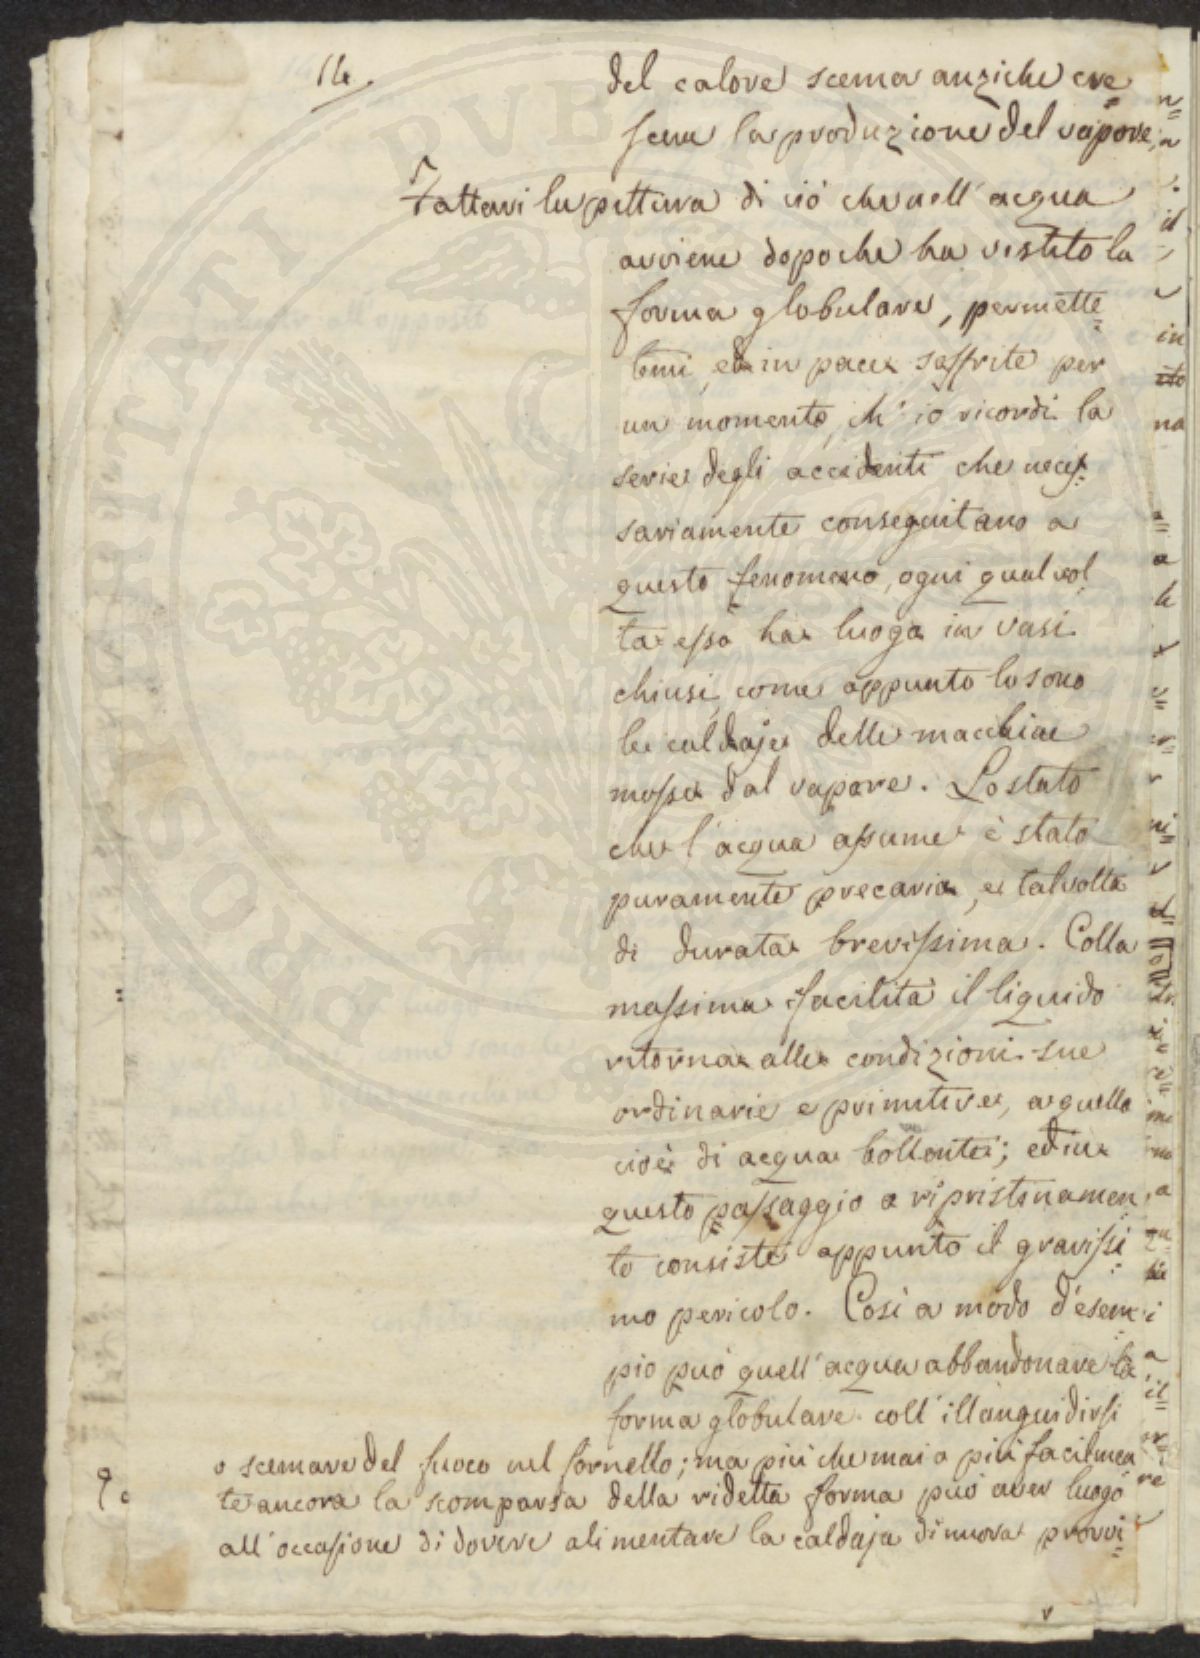 14.
del calore scema anziche cre=
scere la produzione del vapore.
Fattavi la pittura di ciò che nell'acqua
avviene dopo che ha vestito la
forma globulare, permette=
temi, ed in pace soffrite per
un momento, ch'io ricordi la
serie degli accidenti che neces=
sariamente conseguitano a
questo fenomeno, ogni qual vol
ta esso ha luogo in vasi
chiusi, come appunto lo sono
le caldaje delle macchine
mosse dal vapore. Lo stato
che l'acqua assume è stato
puramente precario, e talvolta
di durata brevissima. Colla
massima facilità il liquido
ritorna alle condizioni sue
ordinarie e primitive, a quelle
cioè di acqua bollente; ed in
questo passaggio o ripristinamen
to consiste appunto il gravissi
mo pericolo. Così a modo d'esem
pio può quell'acqua abbandonare la
forma globulare coll'illanguidirsi
o scemare del fuoco nel fornello; ma più che mai o più facilmen
te ancora la scomparsa della ridetta forma può aver luogo
all'occasione di dovere alimentare la caldaja di nuova provvi=
PROSPERITATI PVBLICAE